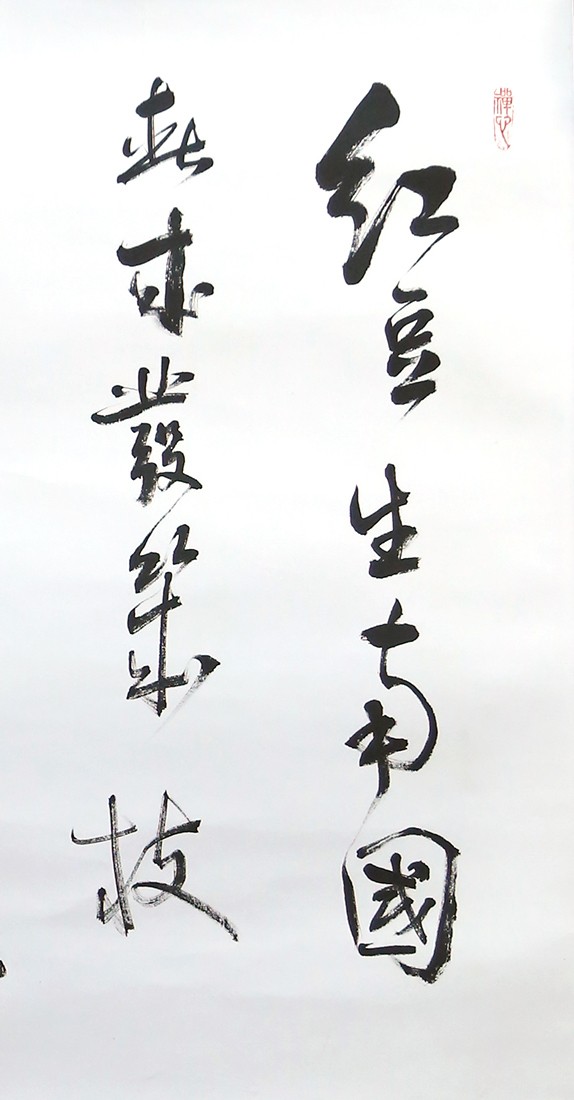 禪心
紅豆生南國
春來發幾枝